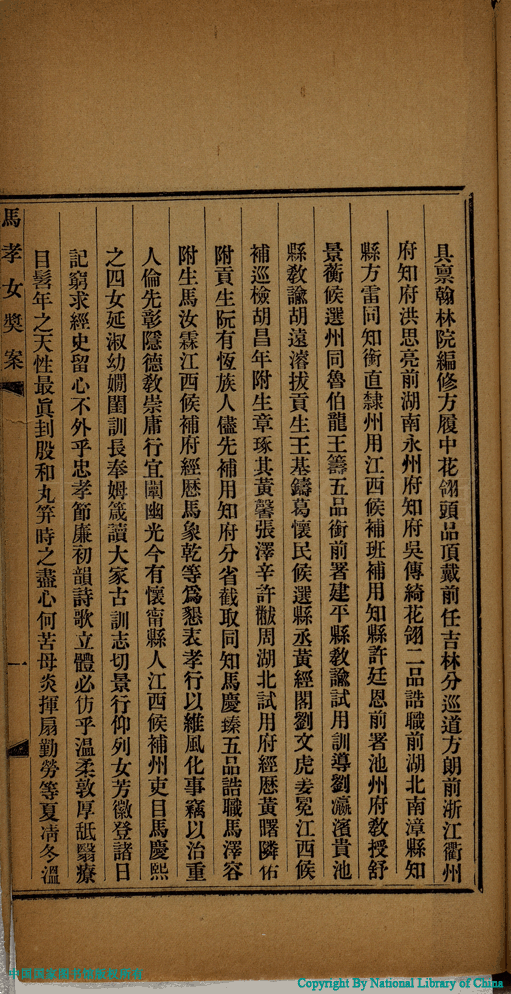 具稟翰林院編修方履中花翎頭品頂戴前任吉林分巡道方朗前浙江衢州
府知府洪思亮前湖南永州府知府吳傳綺花翎二品誥職前湖北南漳縣知
縣方雷同知銜直隸州用江西候補班補用知縣許廷恩前署池州府教授舒
景蘅候選州同魯伯龍王籌五品銜前署建平縣教諭試用訓導劉瀛濱貴池
縣教諭胡遠濬拔貢生王基鑄葛懷民候選縣丞黃經閣劉文虎姜冕江西候
補巡檢胡昌年附生章琢其黃馨張澤辛許黻周湖北試用府經歷黃曙隣佑
附貢生阮有恆族人儘先補用知府分省截取同知馬慶臻五品誥職馬澤容
附生馬汝霖江西候補府經歷馬象乾等爲懇表孝行以維風化事竊以治重
人倫先彰隱德教崇庸行宜闡幽光今有懷甯縣人江西候補州吏目馬慶熙
之四女延淑幼嫺閨訓長奉姆箴讀大家古訓志切景行仰列女芳徽登諸日
記窮求經史留心不外乎忠孝節廉初韻詩歌立體必仿乎溫柔敦厚舐翳療
目髫年之天性最眞刲股和丸笄時之盡心何苦母炎揮扇勤勞等夏凊冬溫
馬孝女獎案
一
中国国家图书馆版权所有
Copyright By National Library of China